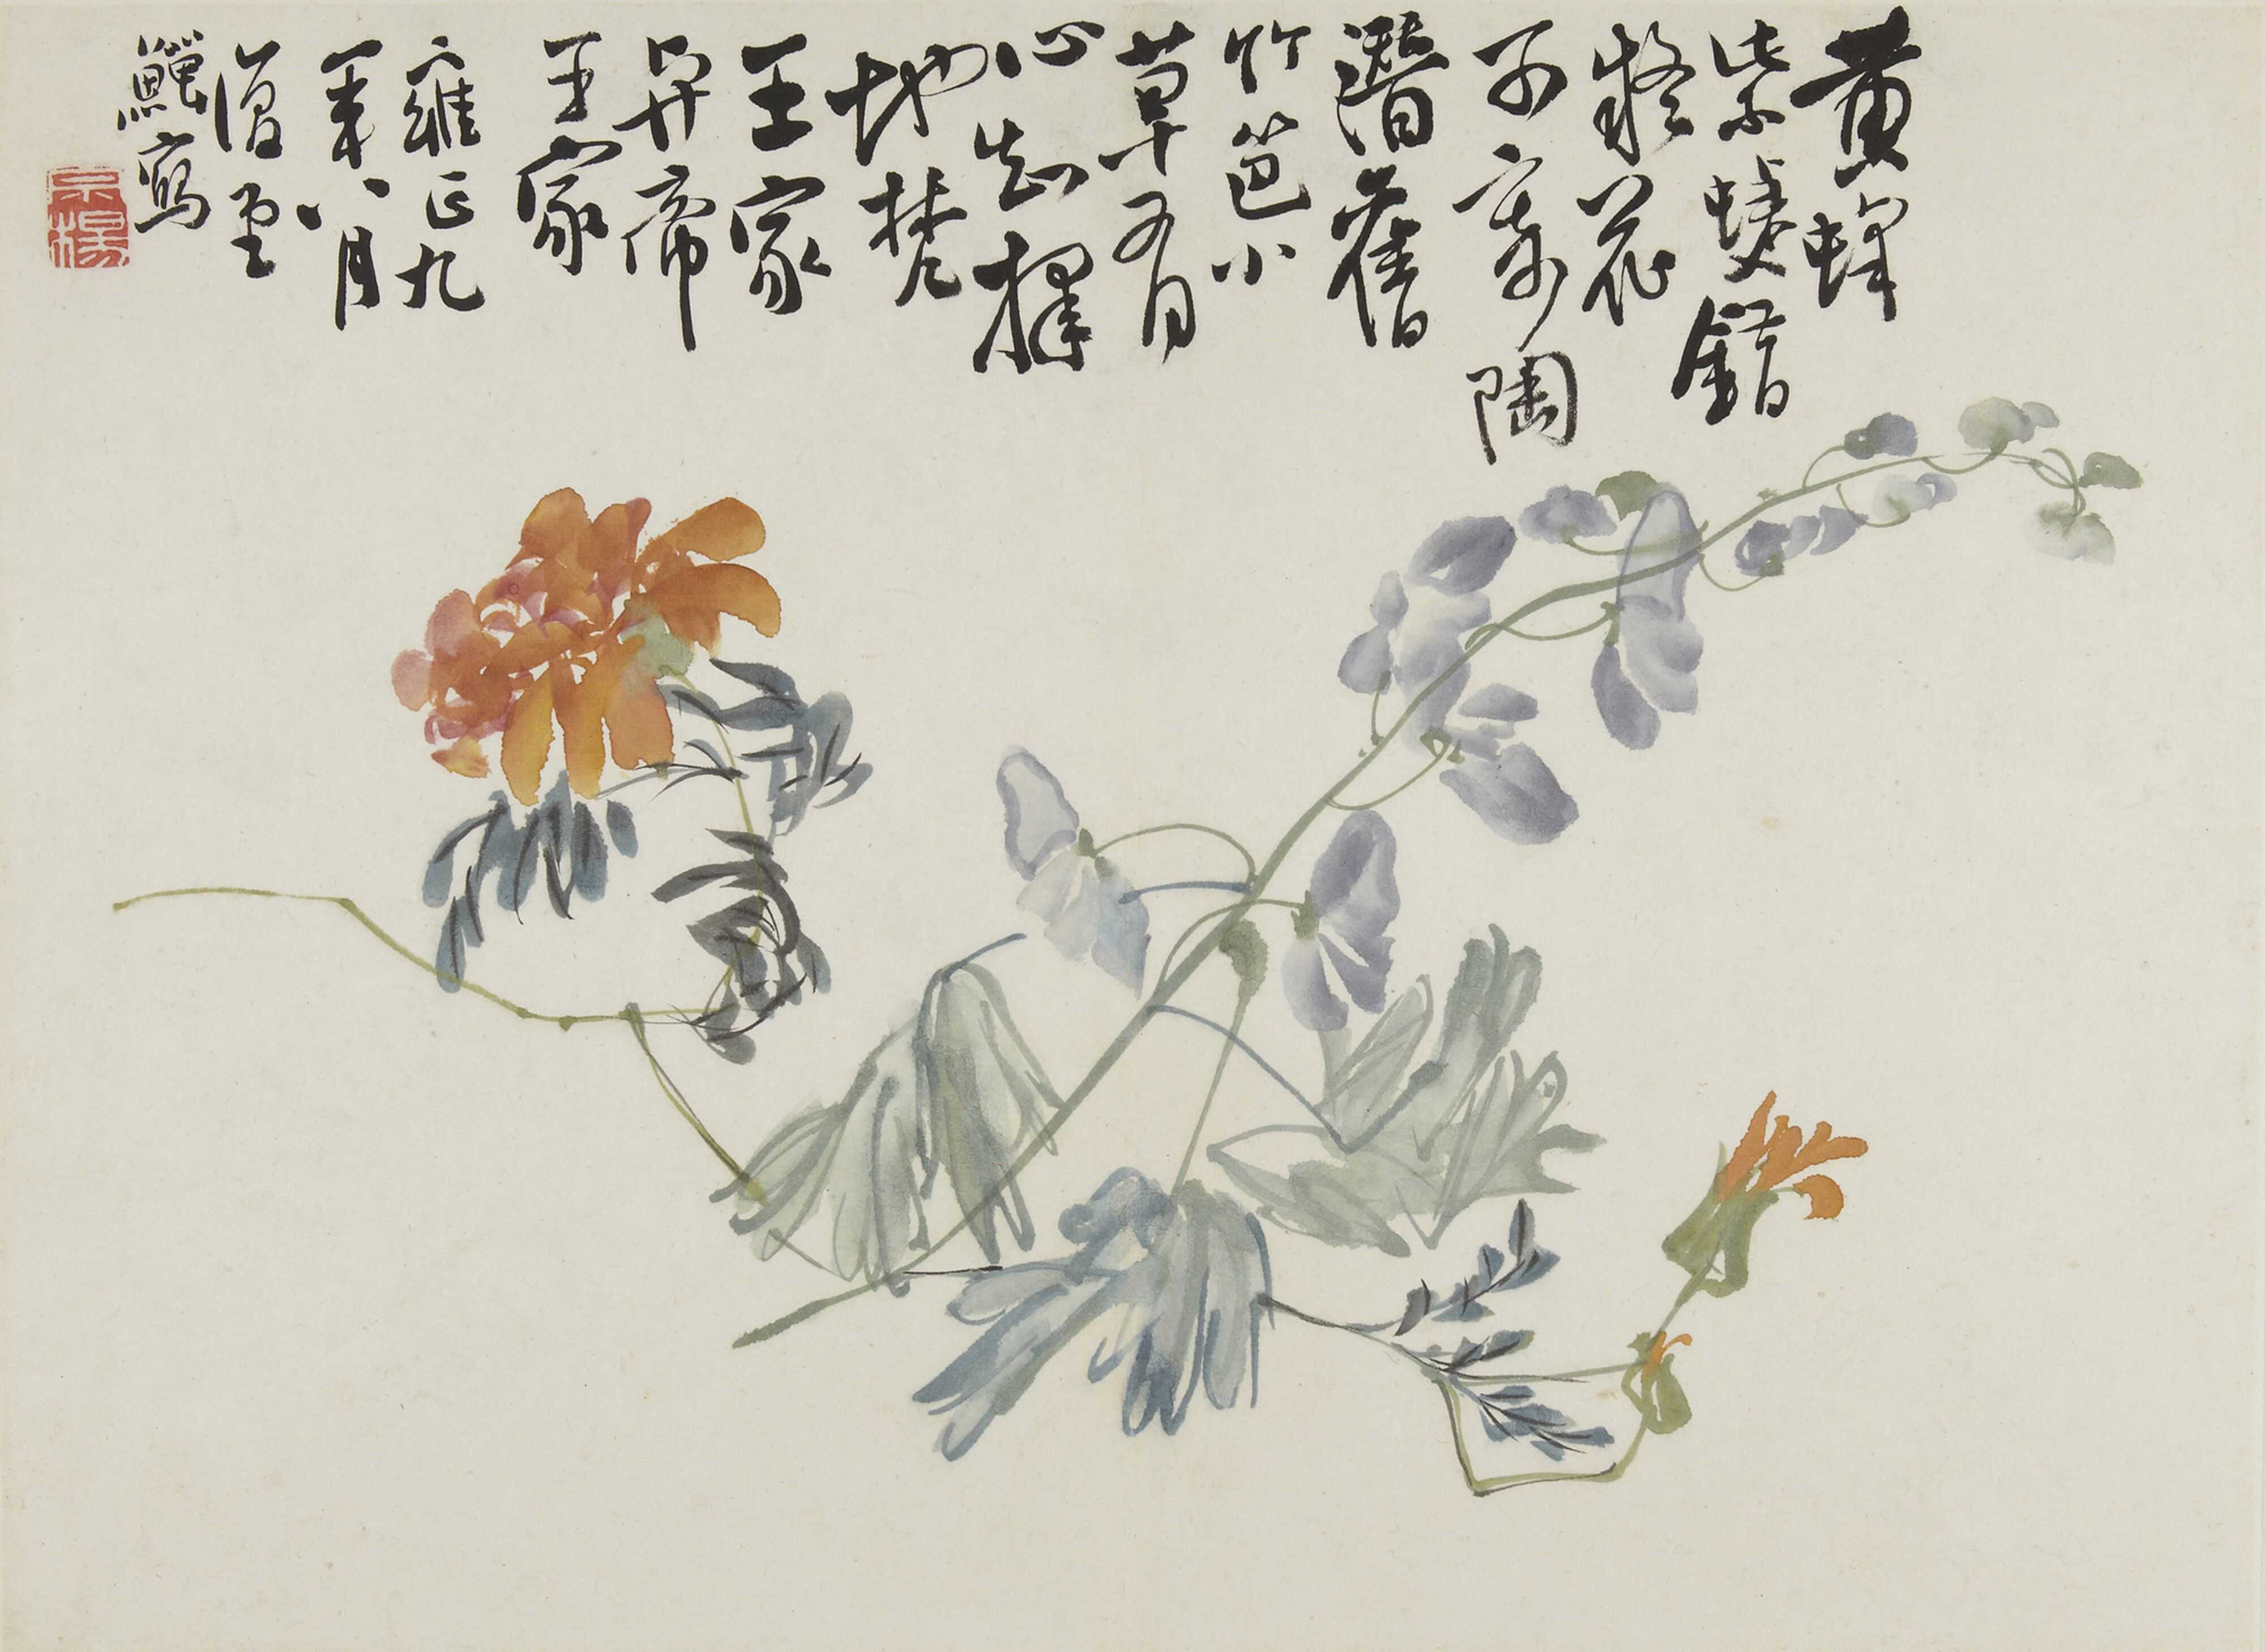 黄蜂
紫蝶錯
疑花
不寄陶
潛舊
竹笆小
草有
心知擇
地梵
王家
與帝
王家
雍正九
年八月
復堂
鱓寫